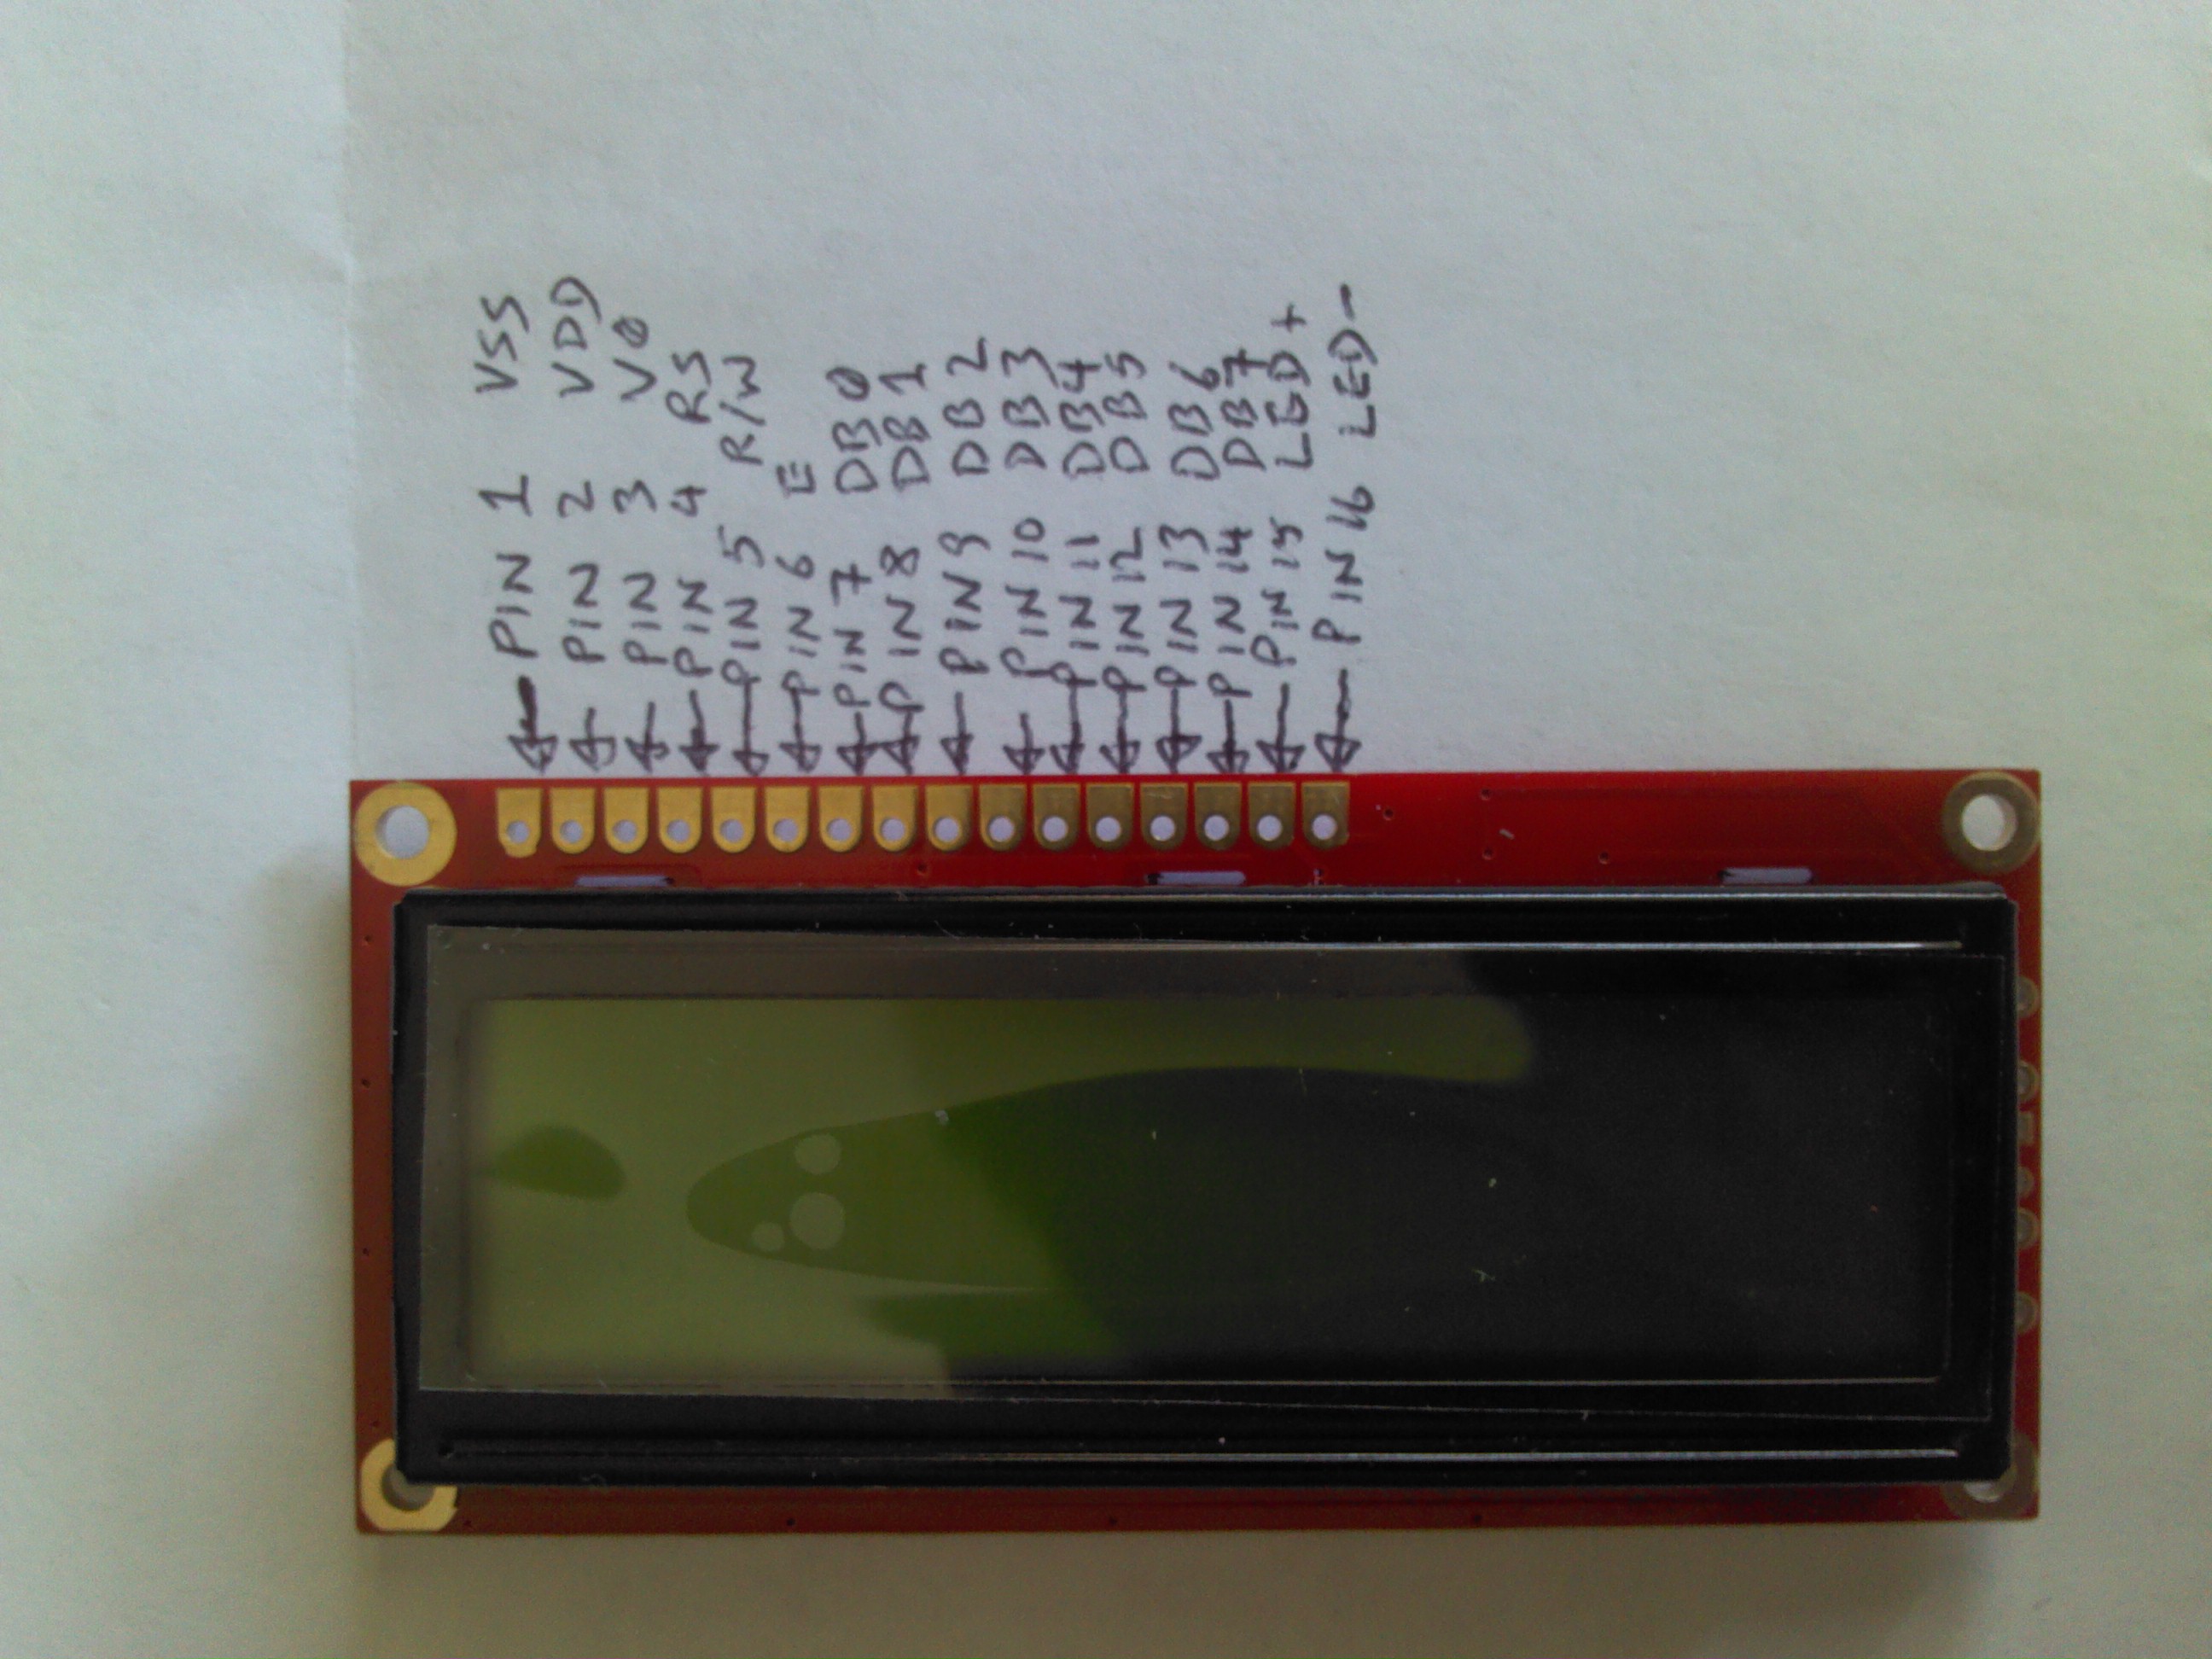 PIN 1 VSS
PIN 2 VDD
PIN 3 V0
PIN 4 RS
PIN 5 R/W
PIN 6 E
PIN 7 DB 0
PIN 8 DB 1
PIN 9 DB 2
PIN 10 DB 3
PIN 11 DB4
PIN 12 DB 5
PIN 13 DB 6
PIN 14 DB 7
PIN 15 LED+
PIN 16 LED-